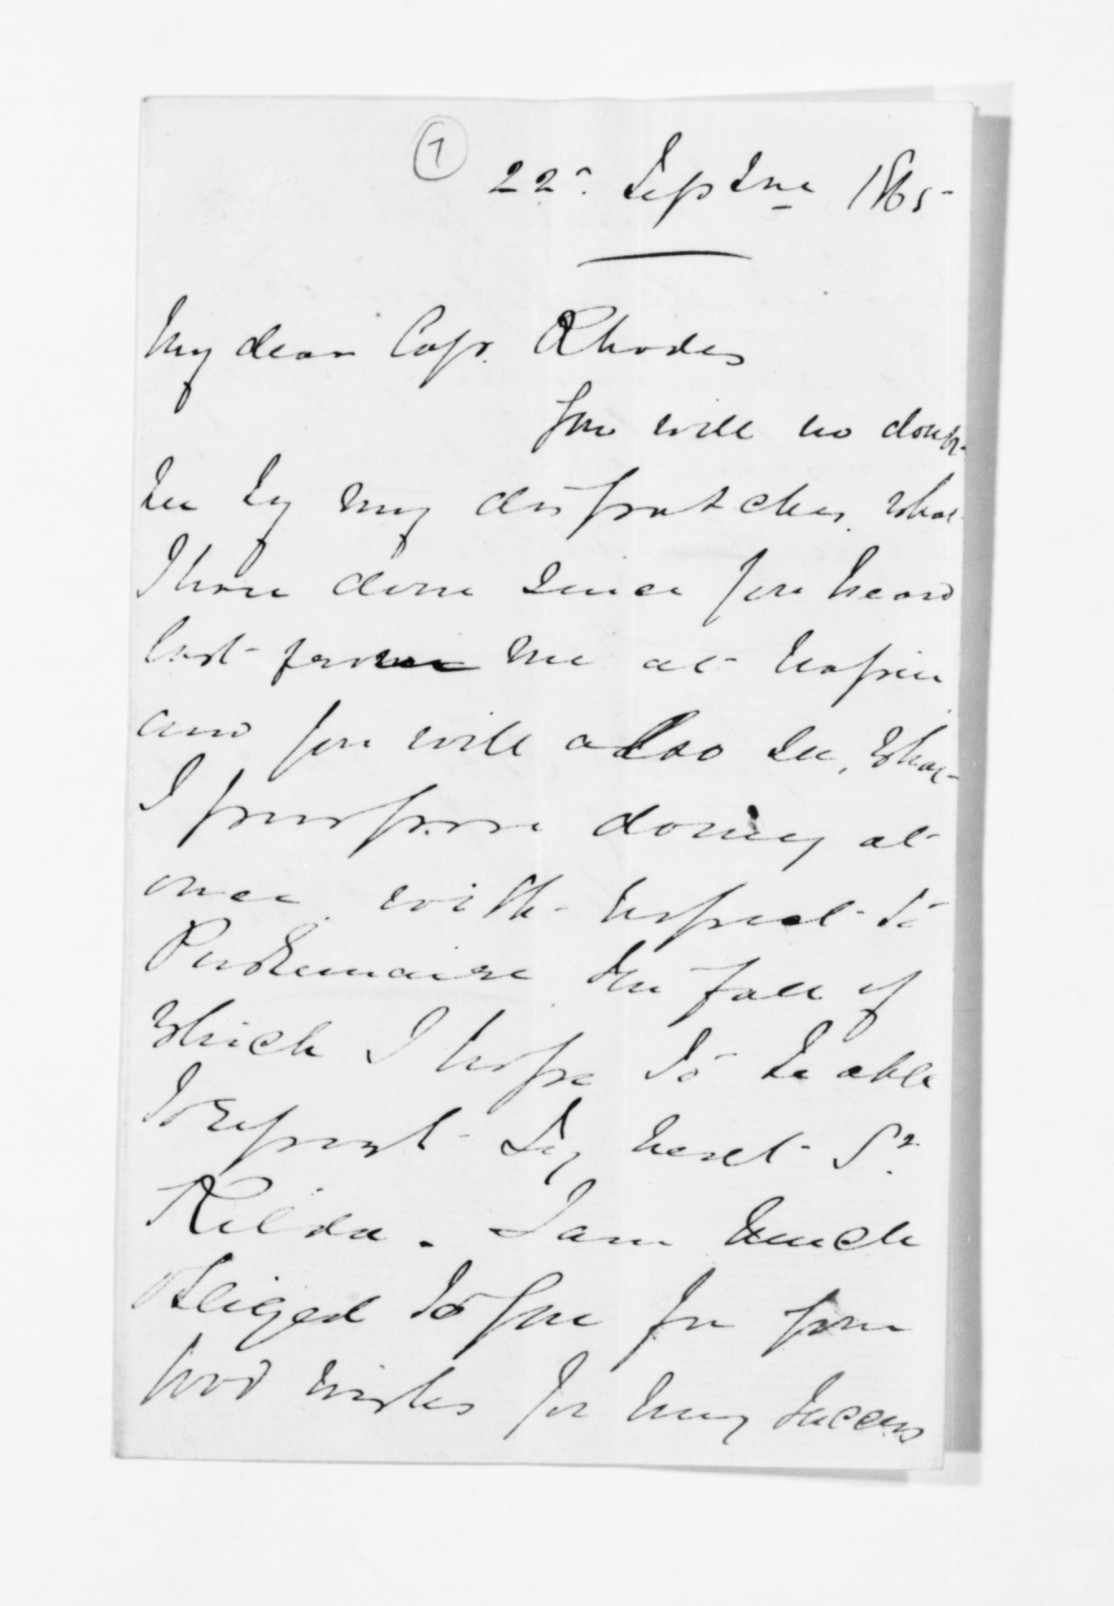 7
22nd Septbr 1865
My dear Capt. Rhodes
You will no doubt
see by my dispatches, what
I have done since you heard
last from me at Napier
and you will also see, what
I purpose doing at
once with respect to
the fall of
which I hope to be able
to report by next St.
Kilda. I am much
obliged to you for your
good wishes for my success